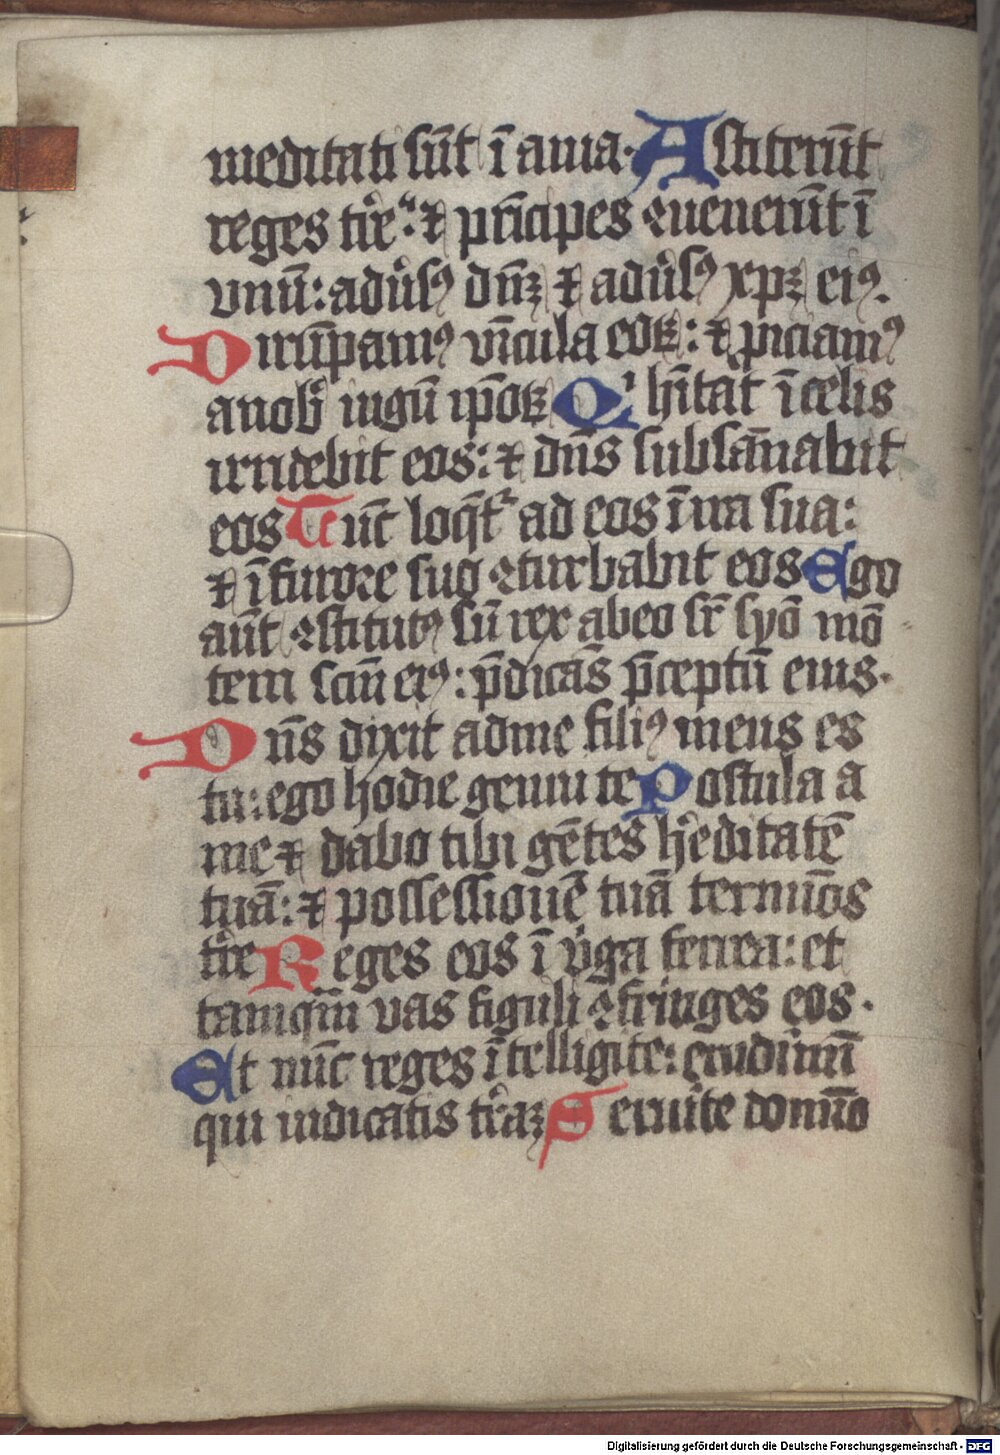 meditati sūt ī ania· Astiterūt
reges tͥre: ⁊ prīcipes ꝯuenerūt ī
vnū: adūsꝰ dn̄ꝫ ⁊ adūsꝰ xpꝫ eiꝰ.
Dirūpamꝰ vīcula eoꝝ: ⁊ ꝓiciamꝰ
a nob̄ iugū ipōꝝ Qͥ hītat̄ ī celis
irridebit eos: ⁊ dn̄s subsānabit
eos Tūc loqͣt᷑ ad eos ī ira sua:
⁊ ī furore suo ꝯturbabit eos Ego
aūt ꝯstitutꝰ sū rex ab eo sr̄ syō mō
tem scūi eiꝰ: p̄dicās p̄ceptū eius.
Dn̄s dixit ad me filiꝰ meus es
tu: ego hodie genui te Postula a
me ⁊ dabo tibi gētes hͤeditatē
tuā: ⁊ possessionē tuā termīos
tͥre Reges eos ī vͥga ferrea: et
tamqͣm̄ vas figuli ꝯfringes eos.
Et nūc reges ītelligite: erudimī
qui iudicatis tͥraꝫ Seruite domīo
Digitalisierung gefördert durch die Deutsche Forschungsgemeinschaft - DFG